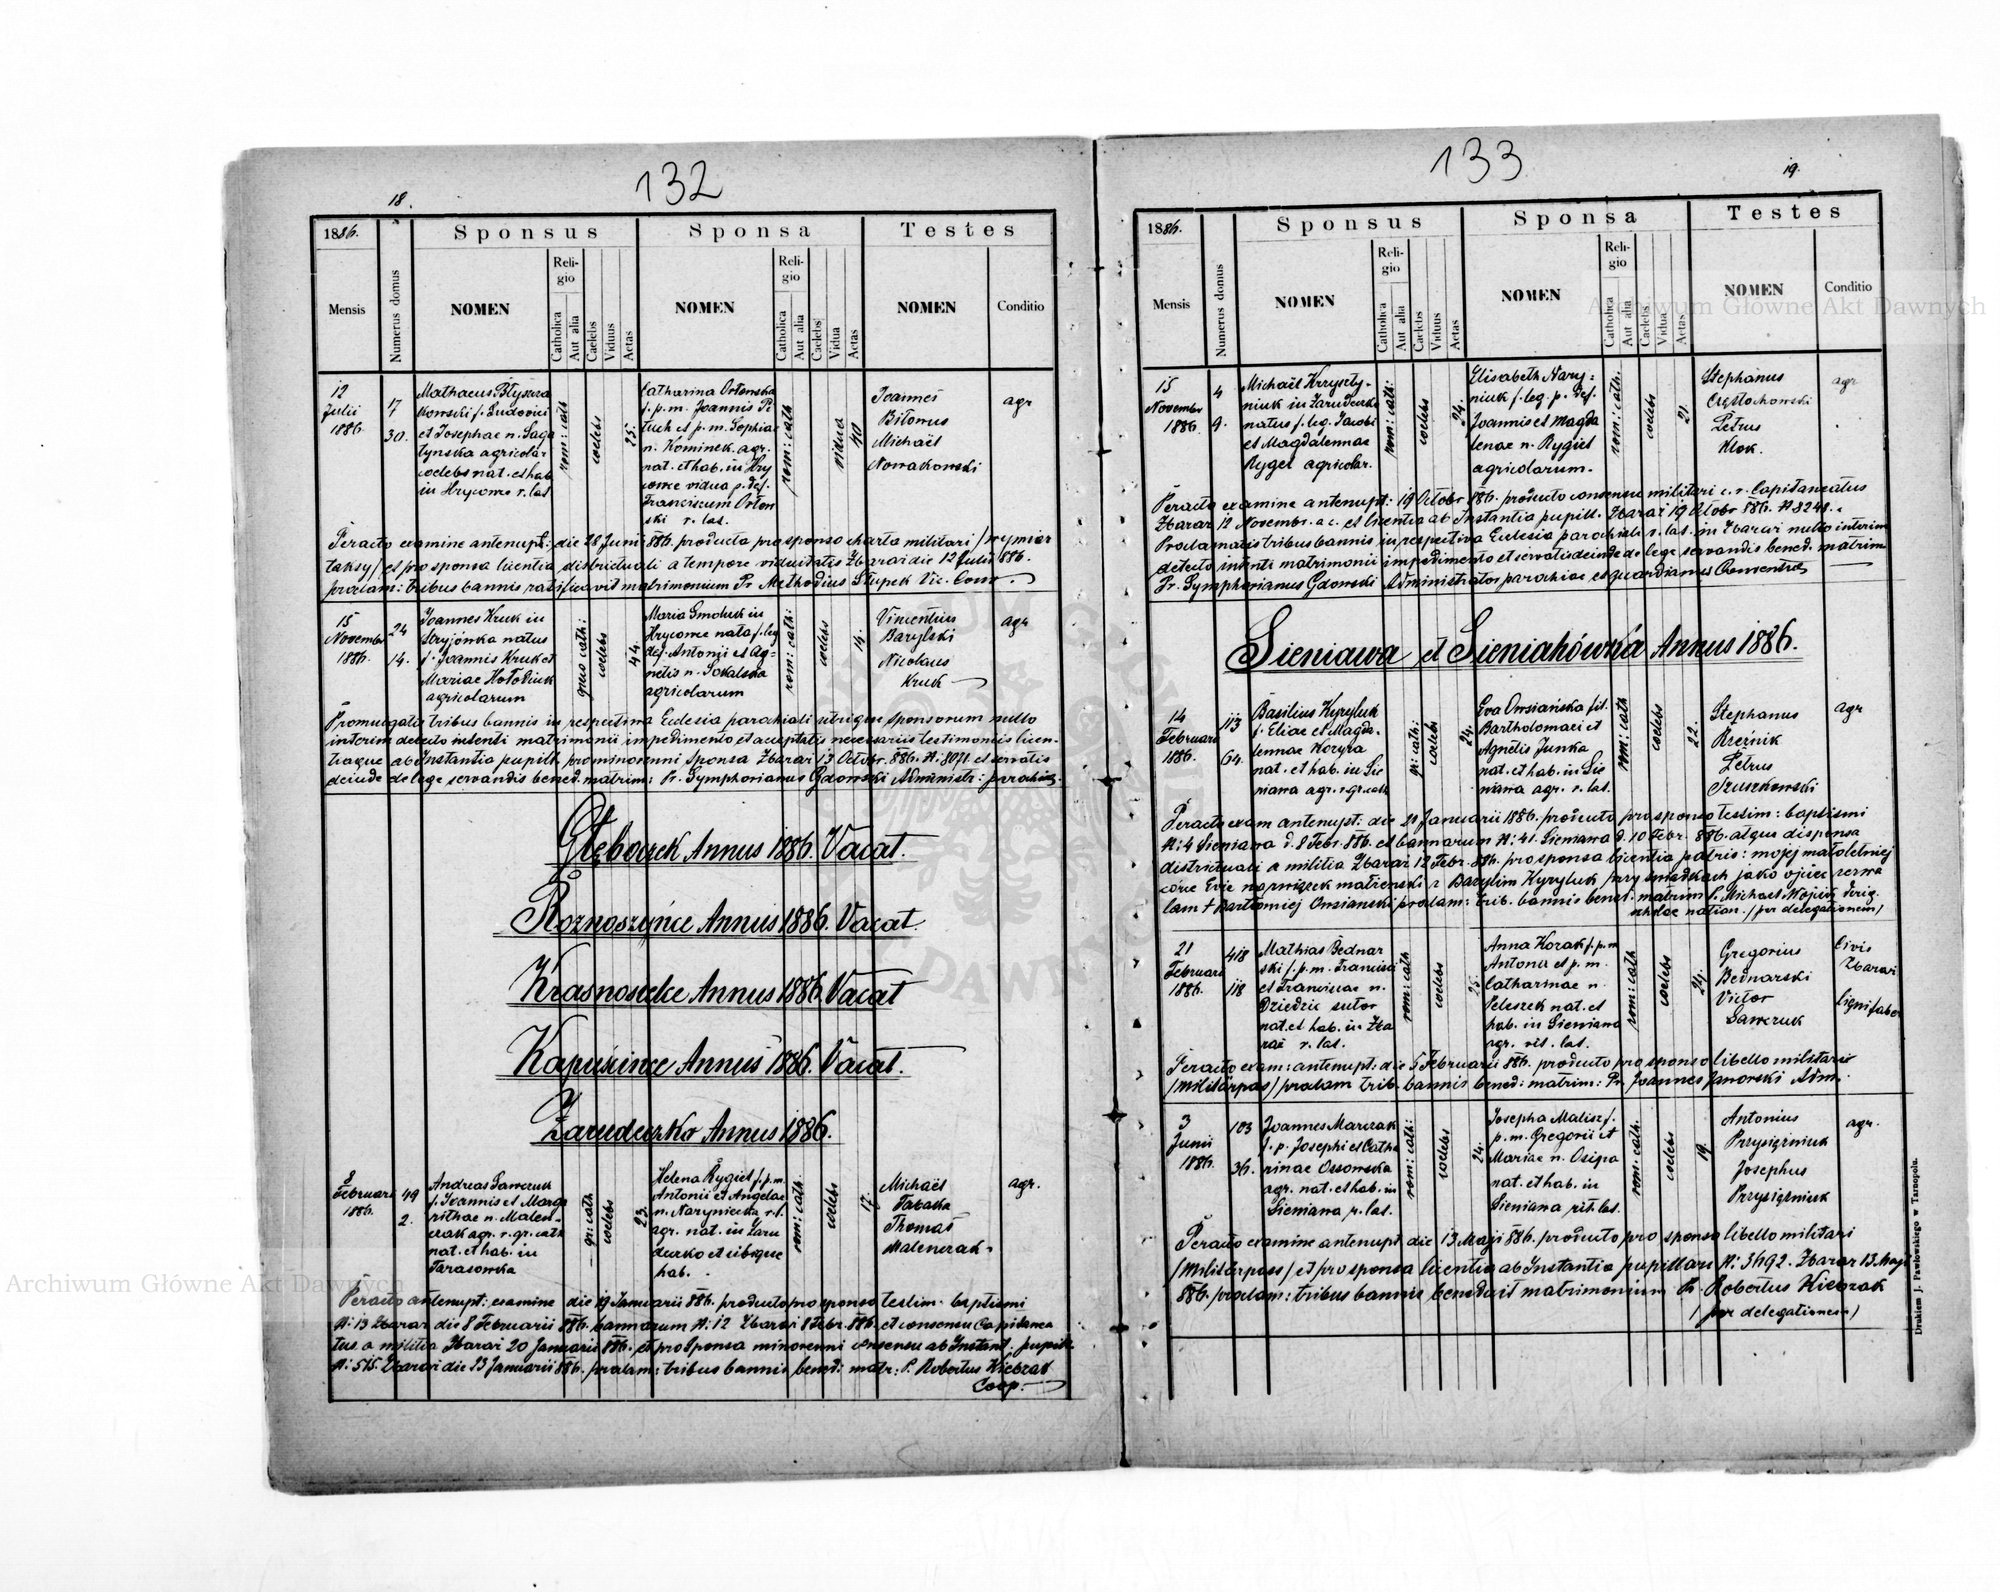 132
18.
1886.
Sponsus
Sponsa
Testes
Mensis
Numerus domus
NOMEN
Religio
Catholica
Aut alia
Caelebs
Viduus
Aetas
NOMEN
Religio
Catholica
Aut alia
Caelebs
Vidua
Aetas
NOMEN
Conditio
12
Julii
1886
17
30.
Mathaeus Błyszcza
kowski f. Ludovici
et Josephae n. Saga
tynska agricolar
coelebs nat. et hab
in Hrycowce r. lat.
rom: cath
coelebs
25.
Catharina Orłowska
f. p. m. Joannis Pe
tuch et p. m. Sophiae
n. Kominek. agr.
nat. et hab. in Hry
cowce vidua p. def.
Franciscum Orłow
ski r. lat.
rom: cath
vidua
40
Joannes
Bilonus
Michaël
Nowakowski
agr
Peracto examine antenupt: die 28 Junii 886. producta pro sponso charta militari / wymiar
taksy / et pro sponsa licentia districtuali a tempore viduitatis Zbaraż die 12 Julii 886.
proclam: tribus bannis ratificavit matrimonium Pr. Methodius Słupek Vic. Conv.
15
Novembr
1886.
24
14.
Joannes Kruk in
Stryjówka natus
f. Joannis Kruk et
Mariae Hołodiuk
agricolarum
graeco cath:
coelebs
44.
Maria Smoluk in
Hrycowce nata f. leg
def. Antonii et Ag-
netis n. Sokalska
agricolarum
rom: cath:
coelebs
Vincentius
Barylski
Nicolaus
Kruk
agr
Promulgatis tribus bannis in respectiva Ecclesia parochiali utrique sponsorum nullo
interim detecto intenti matrimonii impedimento et acceptatis necessariis testimoniis licen-
tiaque ab Instantia pupill. pro minorenni sponsa Zbaraż 13 Octobr. 886. N. 8071 et servatis
deinde de lege servandis bened. matrim: Pr. Symphorianus Gdowski Administr: parochiae
Głęboczek Annus 1886. Vacat.
Roznoszyńce Annus 1886. Vacat.
Krasnosielce Annus 1886. Vacat
Kapuścince Annus 1886. Vacat.
Zarudeczko Annus 1886.
8
Februarii
1886.
49
2.
Andreas Sawczuk
f. Joannis et Marga
rithae n. Malen-
czak agr. r. gr. cath
nat. et hab. in
Tarasówka
gr: cath
coelebs
23.
Helena Rygiel f. p. m.
Antonii et Angelae
n. Naryniecka r. l.
agr. nat. in Zaru
deczko et ibique
hab.
rom: cath.
coelebs
17.
Michaël
Tabaka
Thomas
Malenczak
agr.
Peracto antenupt: examine die 19 Januarii 886. producto pro sponso testim. baptismi
N: 13 Zbaraż die 8 Februarii 886. bannorum N: 12 Zbaraż 8 Febr. 886. et consensu Capitanea
tus a militia Zbaraż 20 Januarii 886. et pro sponsa minorenni consensu ab Instant: pupill.
N: 515. Zbaraż die 23 Januarii 886. proclam: tribus bannis bened: matr: P. Robertus Kiebzak
Coop.
133
19.
1886.
Sponsus
Sponsa
Testes
Mensis
Numerus domus
NOMEN
Religio
Catholica
Aut alia
Caelebs
Viduus
Aetas
NOMEN
Religio
Catholica
Aut alia
Caelebs
Vidua
Aetas
NOMEN
Conditio
15
Novembr
1886
4
9.
Michaël Krzyszty-
niuk in Zarudeczko
natus f. leg. Jacobi
et Magdalennae
Rygel agricolar.
rom: cath:
coelebs
24.
Elisabeth Nary-
niuk f. leg. p. def.
Joannis et Magda
lenae n. Rygiel
agricolarum.
rom: cath.
coelebs
21.
Stephanus
Częstochowski
Petrus
Klok.
agr
Peracto examine antenupt: 19 Octobr 886. producto consensu militari c. r. Capitaneatus
Zbaraż 12 Novembr. a. c. et licentia ab Instantia pupill. Zbaraż 19 Octobr 886. N 8248.
Proclamatis tribus bannis in respectiva Ecclesia parochiali r. lat. in Zbaraż nullo interim
detecto intenti matrimonii impedimento et servatis deinde de lege servandis bened. matrim
Pr. Symphorianus Gdowski Administrator parochiae et guardianus Conventus
Sieniawa et Sieniahówka Annus 1886.
14
Februarii
1886.
113
64.
Basilius Kyryluk
f. Eliae et Magda-
lennae Koryra
nat. et hab. in Sie
niawa agr. r. gr. cath
gr: cath:
coelebs
24.
Eva Owsiańska fil.
Bartholomaei et
Agnetis Junka
nat. et hab. in Sie
niawa agr. r. lat.
rom: cath
coelebs
22.
Stephanus
Kreźnik
Petrus
Truszkowski
agr
Peracto exam antenupt: die 21 Januarii 1886. producto pro sponso testim: baptismi
N: 4 Sieniawa d. 8 Febr. 886. et bannorum N: 41. Sieniawa d. 10 Febr. 886. atque dispensa
districtuali a militia Zbaraż 12 Febr. 886. pro sponsa licentia patris: mojej małoletniej
córce Evie na związek małżeński z Bazylim Kyryluk przy świadkach jako ojciec zezwa
lam + Bartłomiej Owsianski proclam: trib. bannis bened: matrim P. Michael Wojcik dirig.
scholae nation. / per delegationem /
21
Februarii
1886.
418
118
Mathias Bednar
ski f. p. m. Francisci
et Franciscae n.
Dziedzic sutor
nat. et hab. in Zba
raż r. lat.
rom: cath
coelebs
25.
Anna Korak f. p. m
Antonii et p. m.
Catharinae n.
Peleszek nat. et
hab. in Sieniawa
agr. rit. lat.
rom: cath
coelebs
24.
Gregorius
Bednarski
Victor
Sawczuk
Civis
Zbaraż
Lignifaber
Peracto exam: antenupt: die 5 Februarii 886. producto pro sponso libello militari
/ Militärpass / proclam trib. bannis bened: matrim: Pr. Joannes Janowski Adm.
3
Junii
1886.
103
36.
Joannes Marczak
f. p. Josephi et Catha
rinae Ossowska
agr. nat. et hab. in
Sieniawa r. lat.
rom: cath:
coelebs
24.
Josepha Malisz f.
p. m. Gregorii et
Mariae n. Osipa
nat. et hab. in
Sieniawa rit. lat.
rom: cath.
coelebs
19.
Antonius
Przysiężniuk
Josephus
Przysiężniuk
agr.
Peracto examine antenupt die 13 Maji 886. producto pro sponso libello militari
/ Militärpass / et pro sponsa licentia ab Instantia pupillari N: 3692. Zbaraż 13. Maji
886. proclam: tribus bannis benedixit matrimonium Pr. Robertus Kiebzak
/ per delegationem /
Drukiem J. Pawłowskiego w Tarnopolu.
Archiwum Główne Akt Dawnych
Archiwum Główne Akt Dawnych